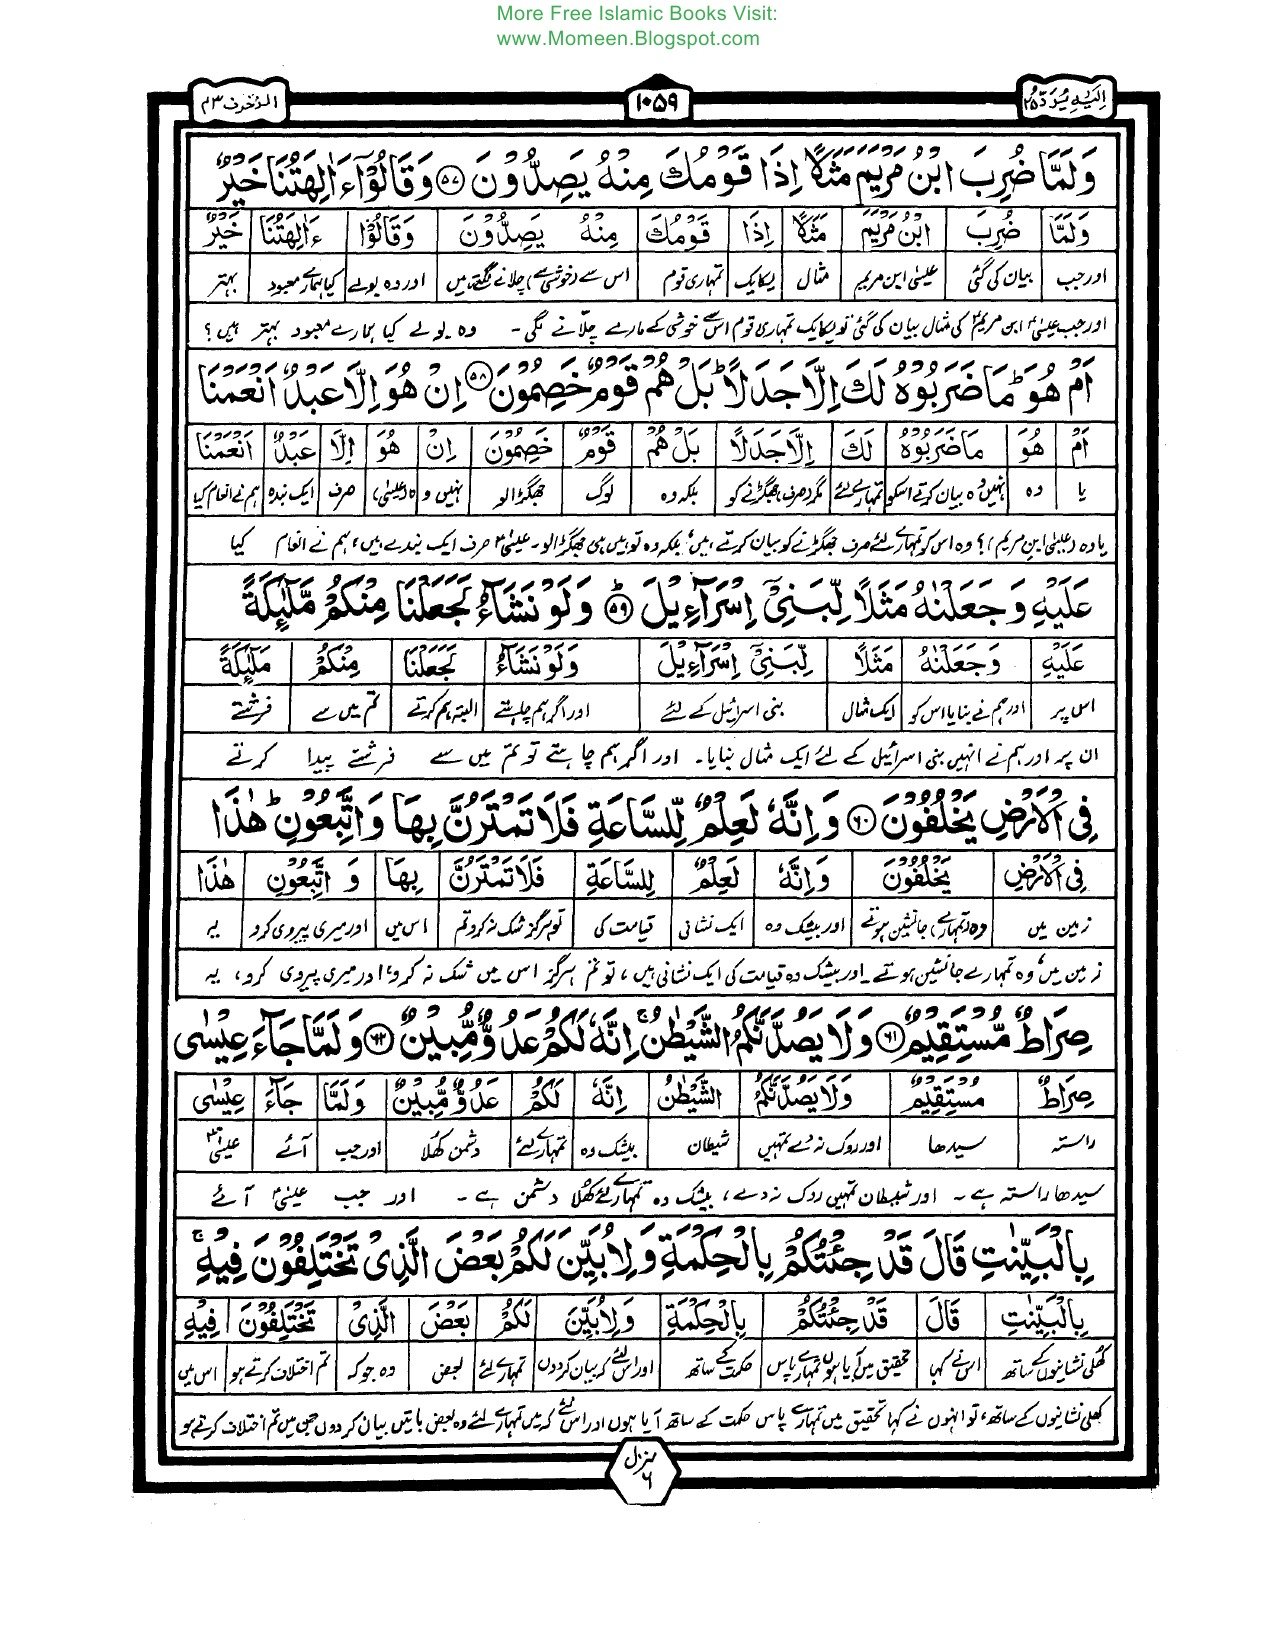 More Free Islamic Books Visit:
www.Momeen.Blogspot.com
الزخرف ۴۳
۱۰۵۹
الیه یرد ۲۵
وَلَمَّا ضُرِبَ ابْنُ مَرْيَمَ مَثَلًا اِذَا قَوْمُكَ مِنْهُ يَصِدُّوْنَ ﴿۵۷﴾ وَقَالُوْٓا ءَاٰلِهَتُنَا خَيْرٌ
وَلَمَّا ضُرِبَ ابْنُ مَرْيَمَ مَثَلًا اِذَا قَوْمُكَ مِنْهُ يَصِدُّوْنَ وَقَالُوْٓا ءَاٰلِهَتُنَا خَيْرٌ
اور جب بیان کی گئی عیسیٰ ابن مریم مثال یکایک تمہاری قوم اس سے (خوشی سے) چلانے لگتے ہیں اور وہ بولے کیا ہمارے معبود بہتر
اور جب عیسیٰؑ ابن مریمؑ کی مثال بیان کی گئی تو یکایک تمہاری قوم اس سے خوشی کے مارے چلّانے لگی۔ وہ بولے کیا ہمارے معبود بہتر ہیں؟
اَمْ هُوَ ؕ مَا ضَرَبُوْهُ لَكَ اِلَّا جَدَلًا ؕ بَلْ هُمْ قَوْمٌ خَصِمُوْنَ ﴿۵۸﴾ اِنْ هُوَ اِلَّا عَبْدٌ اَنْعَمْنَا
اَمْ هُوَ مَا ضَرَبُوْهُ لَكَ اِلَّا جَدَلًا بَلْ هُمْ قَوْمٌ خَصِمُوْنَ اِنْ هُوَ اِلَّا عَبْدٌ اَنْعَمْنَا
یا وہ نہیں وہ بیان کرتے اسکو تمہارے لئے مگر (صرف) جھگڑنے کو بلکہ وہ لوگ جھگڑالو نہیں وہ (عیسیٰ) صرف ایک بندہ ہم نے انعام کیا
یا وہ (عیسیٰ ابن مریم)؟ وہ اس کو تمہارے لئے صرف جھگڑنے کو بیان کرتے ہیں، بلکہ وہ تو ہیں ہی جھگڑالو۔ عیسیٰؑ صرف ایک بندے ہیں، ہم نے انعام کیا
عَلَيْهِ وَجَعَلْنٰهُ مَثَلًا لِّبَنِيْٓ اِسْرَآءِيْلَ ؕ ﴿۵۹﴾ وَلَوْ نَشَآءُ لَجَعَلْنَا مِنْكُمْ مَّلٰٓئِكَةً
عَلَيْهِ وَجَعَلْنٰهُ مَثَلًا لِّبَنِيْٓ اِسْرَآءِيْلَ وَلَوْ نَشَآءُ لَجَعَلْنَا مِنْكُمْ مَّلٰٓئِكَةً
اس پر اور ہم نے بنایا اس کو ایک مثال بنی اسرائیل کے لئے اور اگر ہم چاہتے البتہ ہم کرتے تم میں سے فرشتے
ان پر اور ہم نے انہیں بنی اسرائیل کے لئے ایک مثال بنایا۔ اور اگر ہم چاہتے تو تم میں سے فرشتے پیدا کرتے
فِي الْاَرْضِ يَخْلُفُوْنَ ﴿۶۰﴾ وَاِنَّهٗ لَعِلْمٌ لِّلسَّاعَةِ فَلَا تَمْتَرُنَّ بِهَا وَاتَّبِعُوْنِ ؕ هٰذَا
فِي الْاَرْضِ يَخْلُفُوْنَ وَاِنَّهٗ لَعِلْمٌ لِّلسَّاعَةِ فَلَا تَمْتَرُنَّ بِهَا وَ اتَّبِعُوْنِ هٰذَا
زمین میں وہ (تمہارے) جانشین ہوتے اور بیشک وہ ایک نشانی قیامت کی تو ہرگز شک نہ کرو تم اس میں اور میری پیروی کرو یہ
زمین میں، وہ تمہارے جانشین ہوتے۔ اور بیشک وہ قیامت کی ایک نشانی ہیں، تو تم ہرگز اس میں شک نہ کرو، اور میری پیروی کرو، یہ
صِرَاطٌ مُّسْتَقِيْمٌ ﴿۶۱﴾ وَلَا يَصُدَّنَّكُمُ الشَّيْطٰنُ ۚ اِنَّهٗ لَكُمْ عَدُوٌّ مُّبِيْنٌ ﴿۶۲﴾ وَلَمَّا جَآءَ عِيْسٰى
صِرَاطٌ مُسْتَقِيْمٌ وَلَا يَصُدَّنَّكُمُ الشَّيْطٰنُ اِنَّهٗ لَكُمْ عَدُوٌّ مُّبِيْنٌ وَلَمَّا جَآءَ عِيْسٰى
راستہ سیدھا اور روک نہ دے تمہیں شیطان بیشک وہ تمہارے لئے دشمن کھلا اور جب آئے عیسیٰؑ
سیدھا راستہ ہے۔ اور شیطان تمہیں روک نہ دے، بیشک وہ تمہارے لئے کھلا دشمن ہے۔ اور جب عیسیٰؑ آئے
بِالْبَيِّنٰتِ قَالَ قَدْ جِئْتُكُمْ بِالْحِكْمَةِ وَلِاُبَيِّنَ لَكُمْ بَعْضَ الَّذِيْ تَخْتَلِفُوْنَ فِيْهِ ۚ
بِالْبَيِّنٰتِ قَالَ قَدْ جِئْتُكُمْ بِالْحِكْمَةِ وَلِاُبَيِّنَ لَكُمْ بَعْضَ الَّذِيْ تَخْتَلِفُوْنَ فِيْهِ
کھلی نشانیوں کے ساتھ اس نے کہا تحقیق میں آیا ہوں تمہارے پاس حکمت کے ساتھ اور اس لئے کہ بیان کردوں تمہارے لئے بعض وہ جو کہ تم اختلاف کرتے ہو اس میں
کھلی نشانیوں کے ساتھ، تو انہوں نے کہا تحقیق میں تمہارے پاس حکمت کے ساتھ آیا ہوں اور اس لئے کہ میں تمہارے لئے وہ بعض باتیں بیان کردوں جن میں تم اختلاف کرتے ہو
منزل ۶